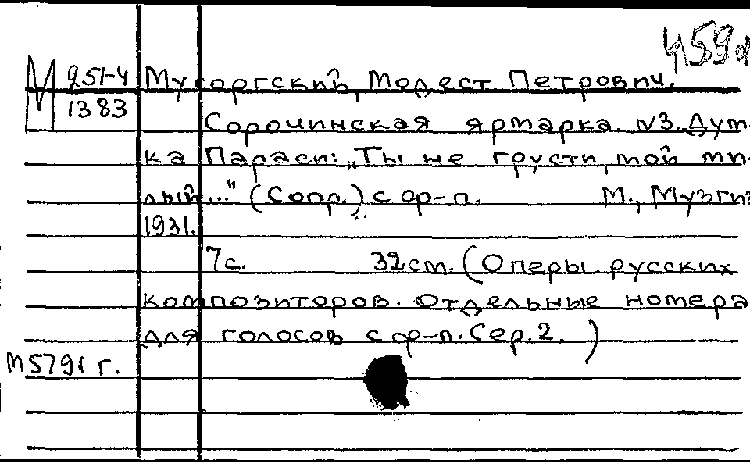 459
М 951-4 Мусоргский, Модест Петрович.
1383
Сорочинская ярмарка. N3. Дум-
ка Параси: „Ты не грусти, мой ми-
лый..." (Сопр.) с ф-п. М., Музгиз
1931.
7с. 32см. (Оперы русских
композиторов. Отдельные номера
для голосов с ф-п. Сер. 2.)
М5791 г.